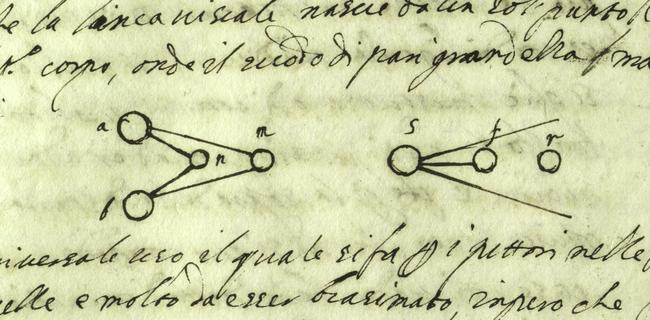 la linea visuale nascie da un sol punto
corpo, onde il secōdo di pari grandezza
a m s f r
n
b
universale uso il quale si fa p i pittori nelle
celle e molto da esser biasimato, inpero che